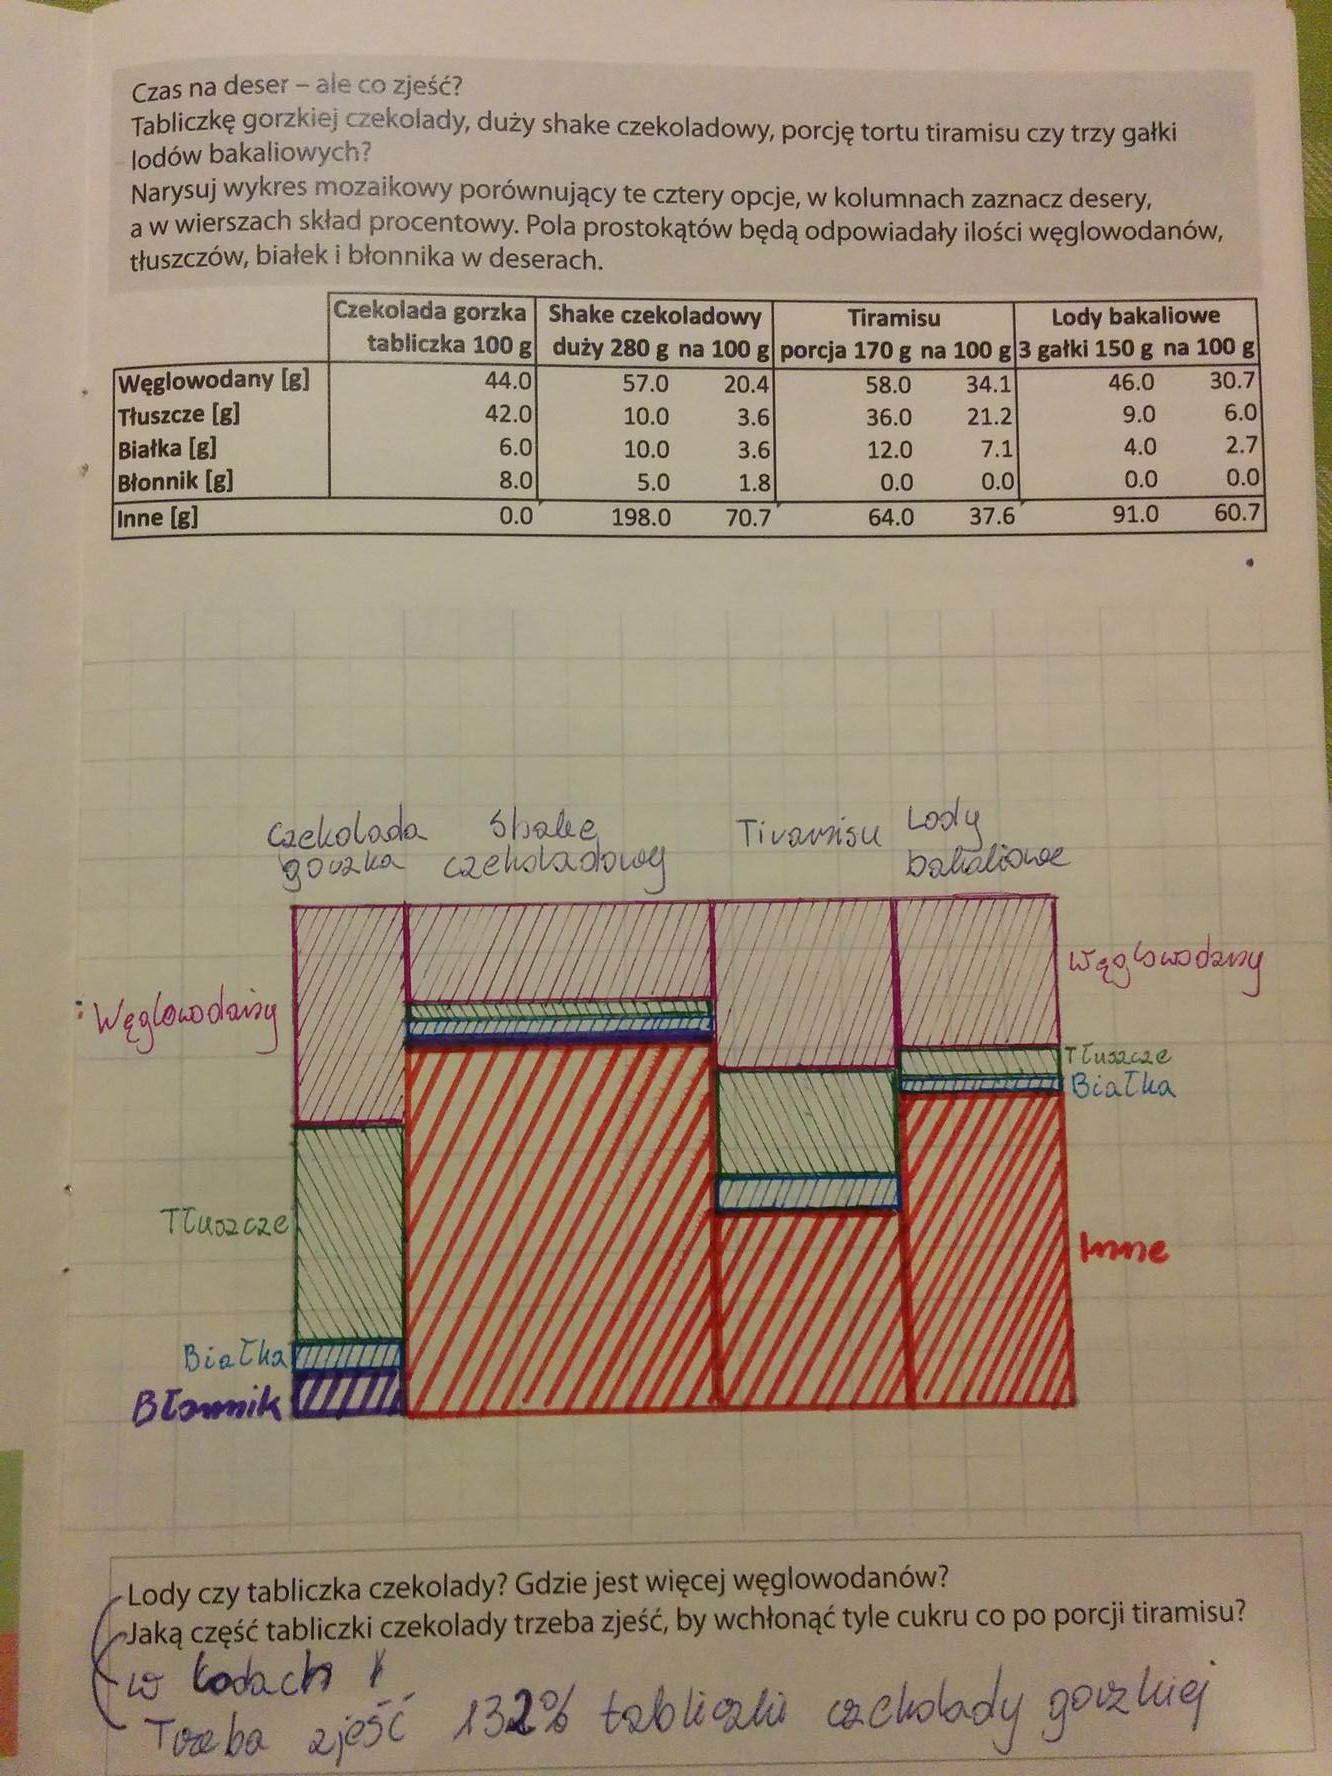 Czas na deser – ale co zjeść?
Tabliczkę gorzkiej czekolady, duży shake czekoladowy, porcję tortu tiramisu czy trzy gałki
lodów bakaliowych?
Narysuj wykres mozaikowy porównujący te cztery opcje, w kolumnach zaznacz desery,
a w wierszach skład procentowy. Pola prostokątów będą odpowiadały ilości węglowodanów,
tłuszczów, białek i błonnika w deserach.
Czekolada gorzka Shake czekoladowy Tiramisu Lody bakaliowe
tabliczka 100 g duży 280 g na 100 g porcja 170 g na 100 g 3 gałki 150 g na 100 g
Węglowodany [g] 44.0 57.0 20.4 58.0 34.1 46.0 30.7
Tłuszcze [g] 42.0 10.0 3.6 36.0 21.2 9.0 6.0
Białka [g] 6.0 10.0 3.6 12.0 7.1 4.0 2.7
Błonnik [g] 8.0 5.0 1.8 0.0 0.0 0.0 0.0
Inne [g] 0.0 198.0 70.7 64.0 37.6 91.0 60.7
Czekolada Shake Tiramisu Lody
gorzka czekoladowy bakaliowe
Węglowodany
Węglowodany
Tłuszcze
Białka
Tłuszcze
Inne
Białka
Błonnik
Lody czy tabliczka czekolady? Gdzie jest więcej węglowodanów?
Jaką część tabliczki czekolady trzeba zjeść, by wchłonąć tyle cukru co po porcji tiramisu?
w lodach
Trzeba zjeść 132% tabliczki czekolady gorzkiej